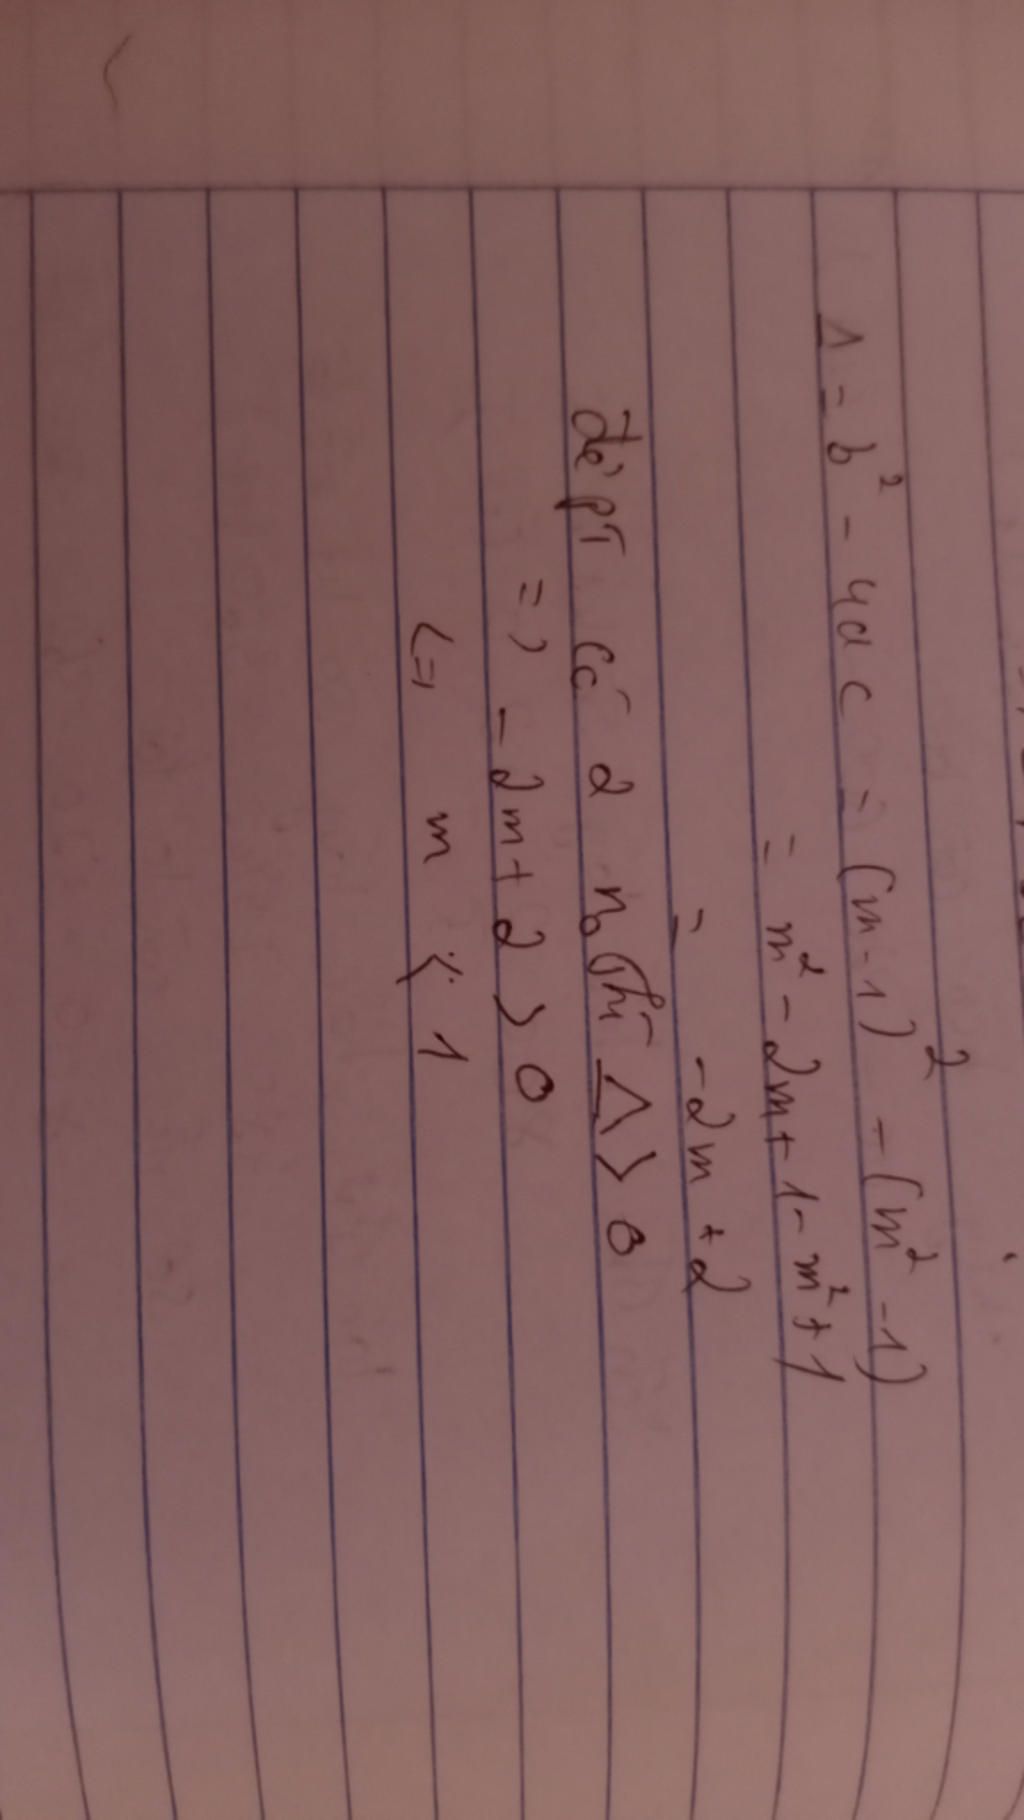 Δ = b² - 4ac = (m-1)² - (m² -1)
= m² - 2m + 1 - m² + 1
= -2m + 2
để pT có 2 no thì Δ > 0
=> -2m + 2 > 0
<=> m < 1